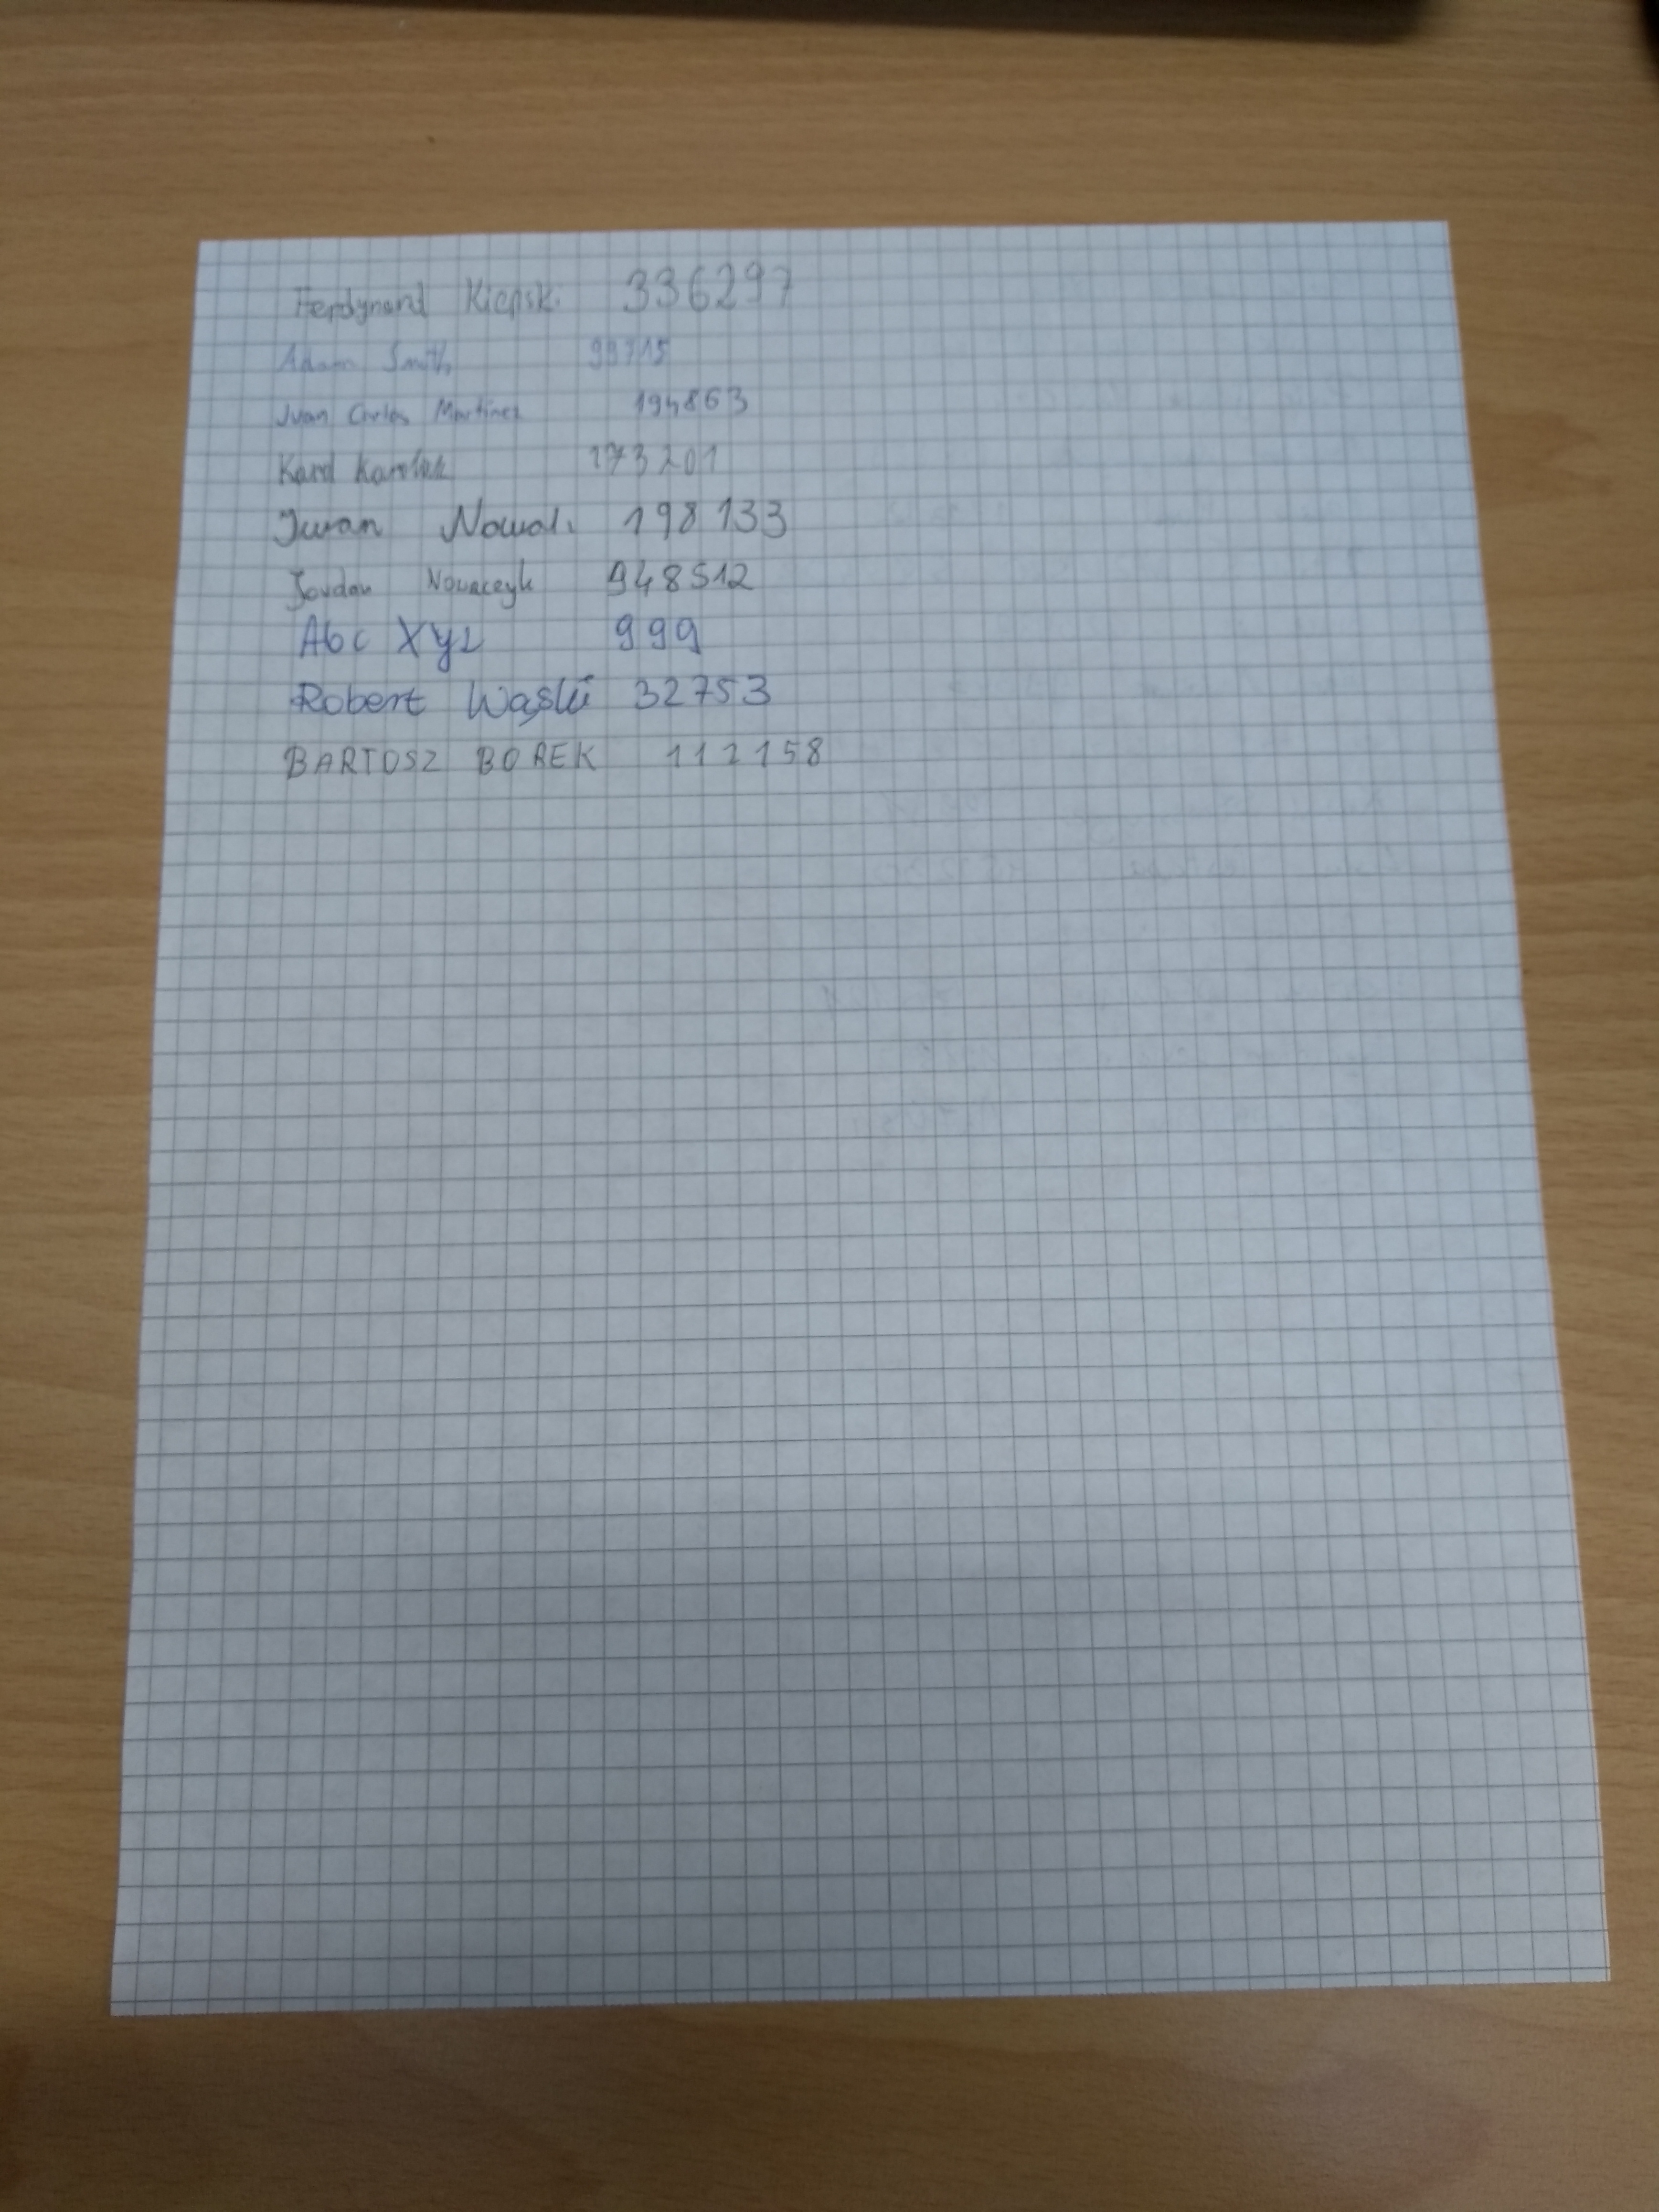 Ferdynand Kiepski 336297
Adam Smith 99715
Juan Carlos Martinez 194863
Karol Karolak 173201
Iwan Nowak 198133
Jordan Nowaczyk 948512
Abc Xyz 999
Robert Wąski 32753
BARTOSZ BOREK 112158